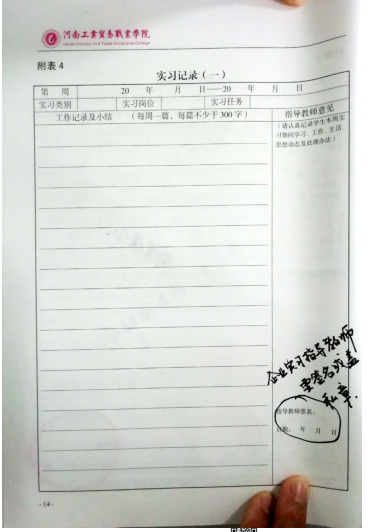 河南工业贸易职业学院
Henan Industry And Trade Vocational College
附表 4
实习记录（一）
第 周 20 年 月 日——20 年 月 日
实习类别 实习岗位 实习任务
工作记录及小结 （每周一篇，每篇不少于 300 字）
指导教师意见
（请认真记录学生本周实
习期间学习、工作、生活、
思想动态及处理办法）
企业实习指导教师
要签名或盖
私章.
指导教师签名：
日期： 年 月 日
- 14 -